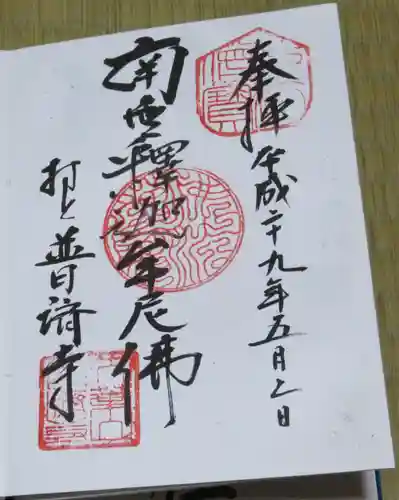 奉拝 平成二十九年五月二日
南無釋迦牟尼佛
普濟寺